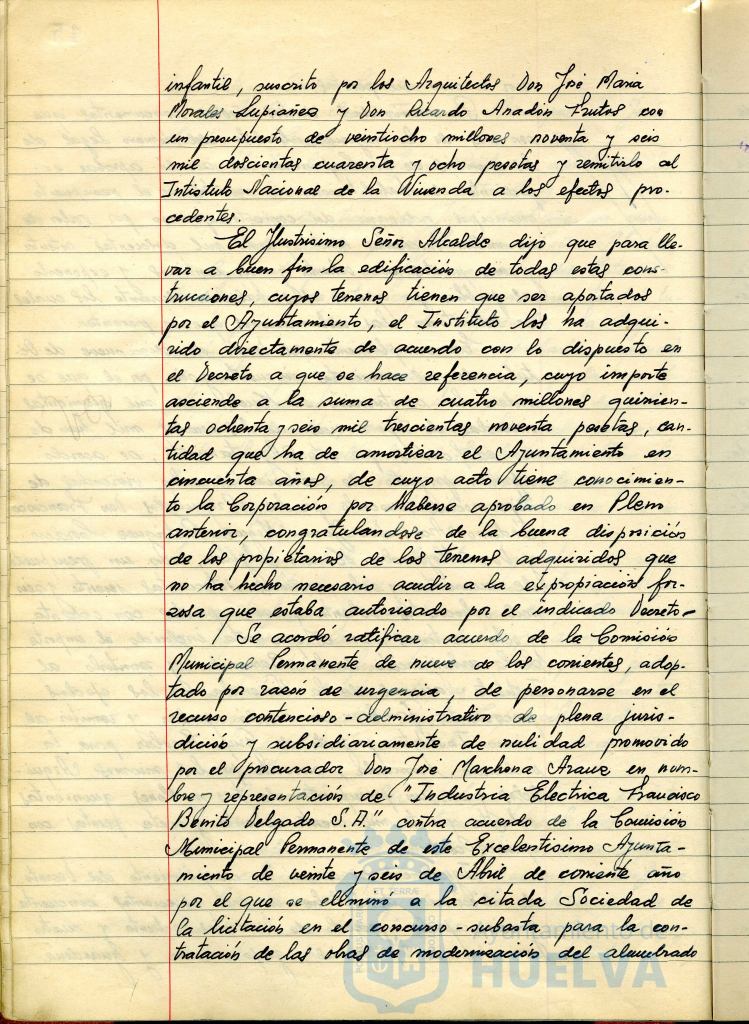 infantil, suscrito por los Arquitectos Don José Maria
Morales Lupiañez y Don Ricardo Anadón Frutos con
un presupuesto de veintiocho millones noventa y seis
mil doscientas cuarenta y ocho pesetas y remitirlo al
Intistuto Nacional de la Vivienda a los efectos pro-
cedentes.
El Ilustrisimo Señor Alcalde dijo que para lle-
var a buen fin la edificación de todas estas cons-
trucciones, cuyos terrenos tienen que ser aportados
por el Ayuntamiento, el Instituto los ha adqui-
rido directamente de acuerdo con lo dispuesto en
el Decreto a que se hace referencia, cuyo importe
asciende a la suma de cuatro millones quinien-
tas ochenta y seis mil trescientas noventa pesetas, can-
tidad que ha de amortizar el Ayuntamiento en
cincuenta años, de cuyo acto tiene conocimien-
to la Corporación por haberse aprobado en Pleno
anterior, congratulandose de la buena disposición
de los propietarios de los terrenos adquiridos que
no ha hecho necesario acudir a la expropiación for-
zosa que estaba autorizado por el indicado Decreto-
Se acordó ratificar acuerdo de la Comisión
Municipal Permanente de nueve de los corrientes, adop-
tado por razón de urgencia, de personarse en el
recurso contencioso-administrativo de plena juris-
dicción y subsidiariamente de nulidad promovido
por el procurador Don José Marchena Arauz en nom-
bre y representación de "Industria Electrica Francisco
Benito Delgado S.A." contra acuerdo de la Comisión
Municipal Permanente de este Excelentisimo Ayunta-
miento de veinte y seis de Abril de corriente año
por el que se eliminó a la citada Sociedad de
la licitación en el concurso-subasta para la con-
tratación de las obras de modernización del alumbrado
HUELVA